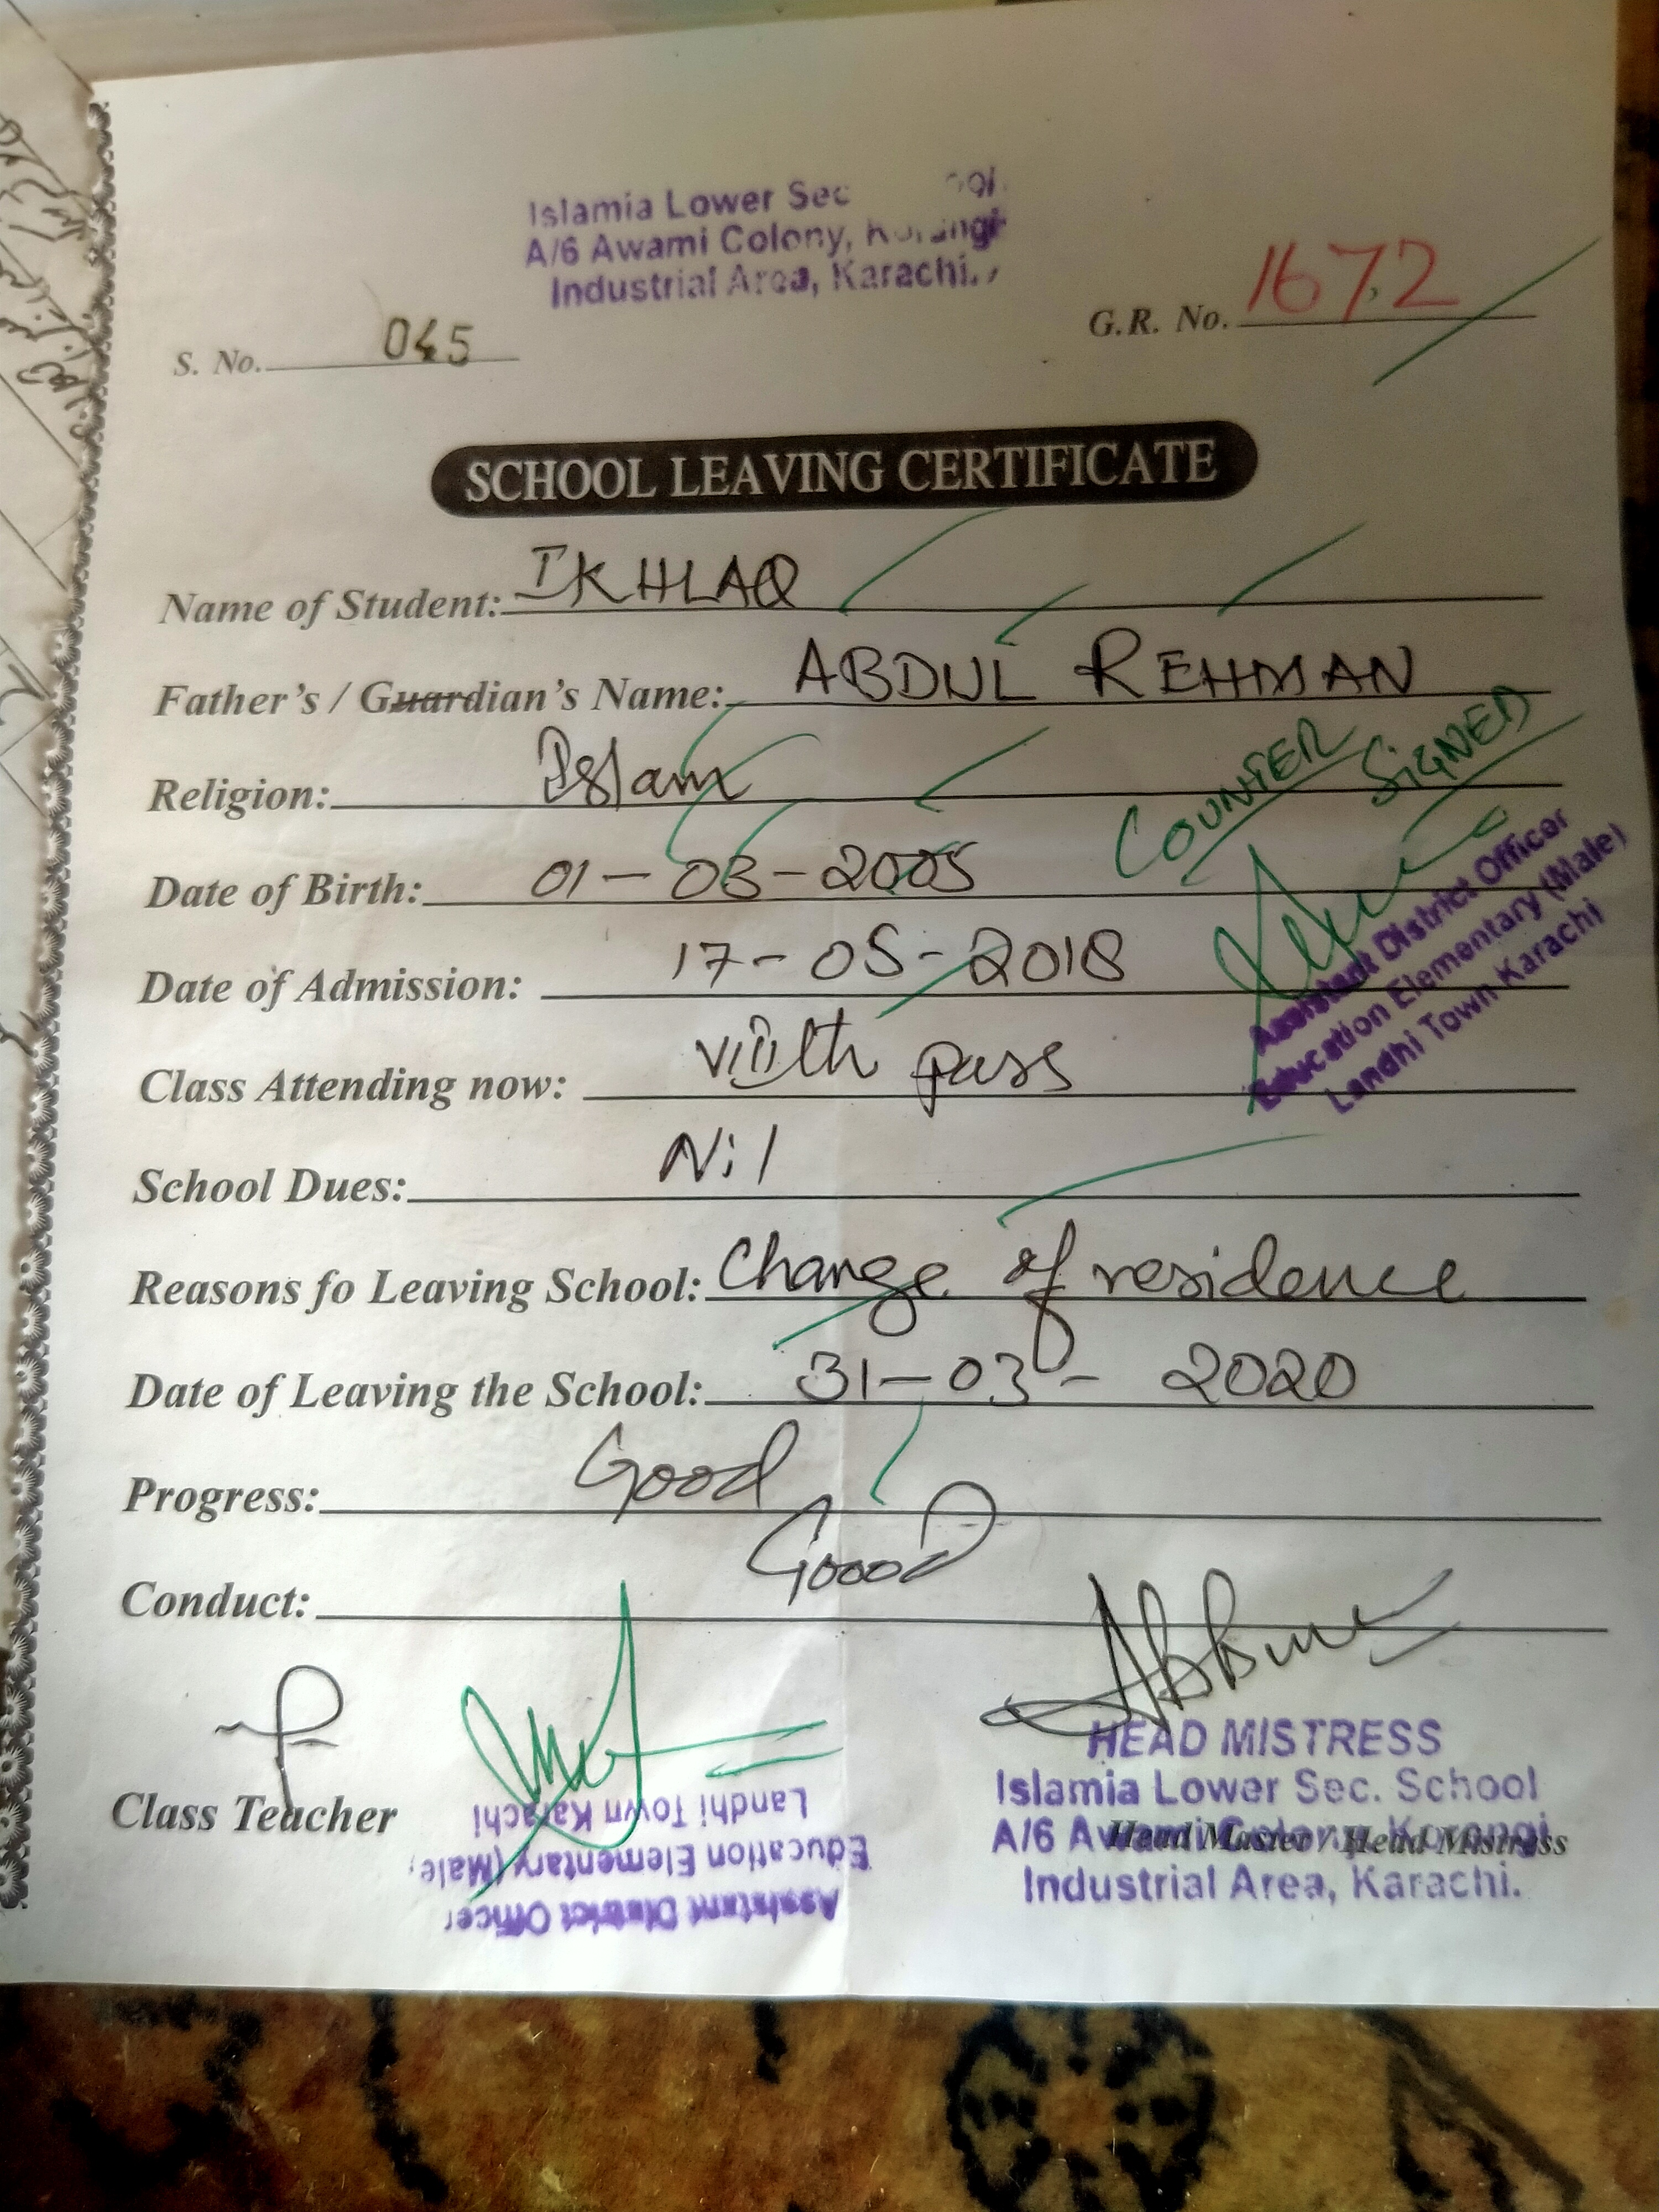 Islamia Lower Sec
A/6 Awami Colony, Korangi
Industrial Area, Karachi.
S. No. 045
G.R. No. 1672
SCHOOL LEAVING CERTIFICATE
Name of Student: IKHLAQ
Father's / Guardian's Name: ABDUL REHMAN
Religion: Islam
COUNTER SIGNED
Date of Birth: 01-03-2005
Assistant District Officer
Education Elementary (Male)
Landhi Town Karachi
Date of Admission: 17-05-2018
Class Attending now: VIIIth pass
School Dues: Nil
Reasons fo Leaving School: Change of residence
Date of Leaving the School: 31-03-2020
Progress: Good
Conduct: Goood
Class Teacher
Assistant District Officer
Education Elementary (Male)
Landhi Town Karachi
HEAD MISTRESS
Islamia Lower Sec. School
A/6 Awami Colony, Korangi
Head Master / Head Mistress
Industrial Area, Karachi.